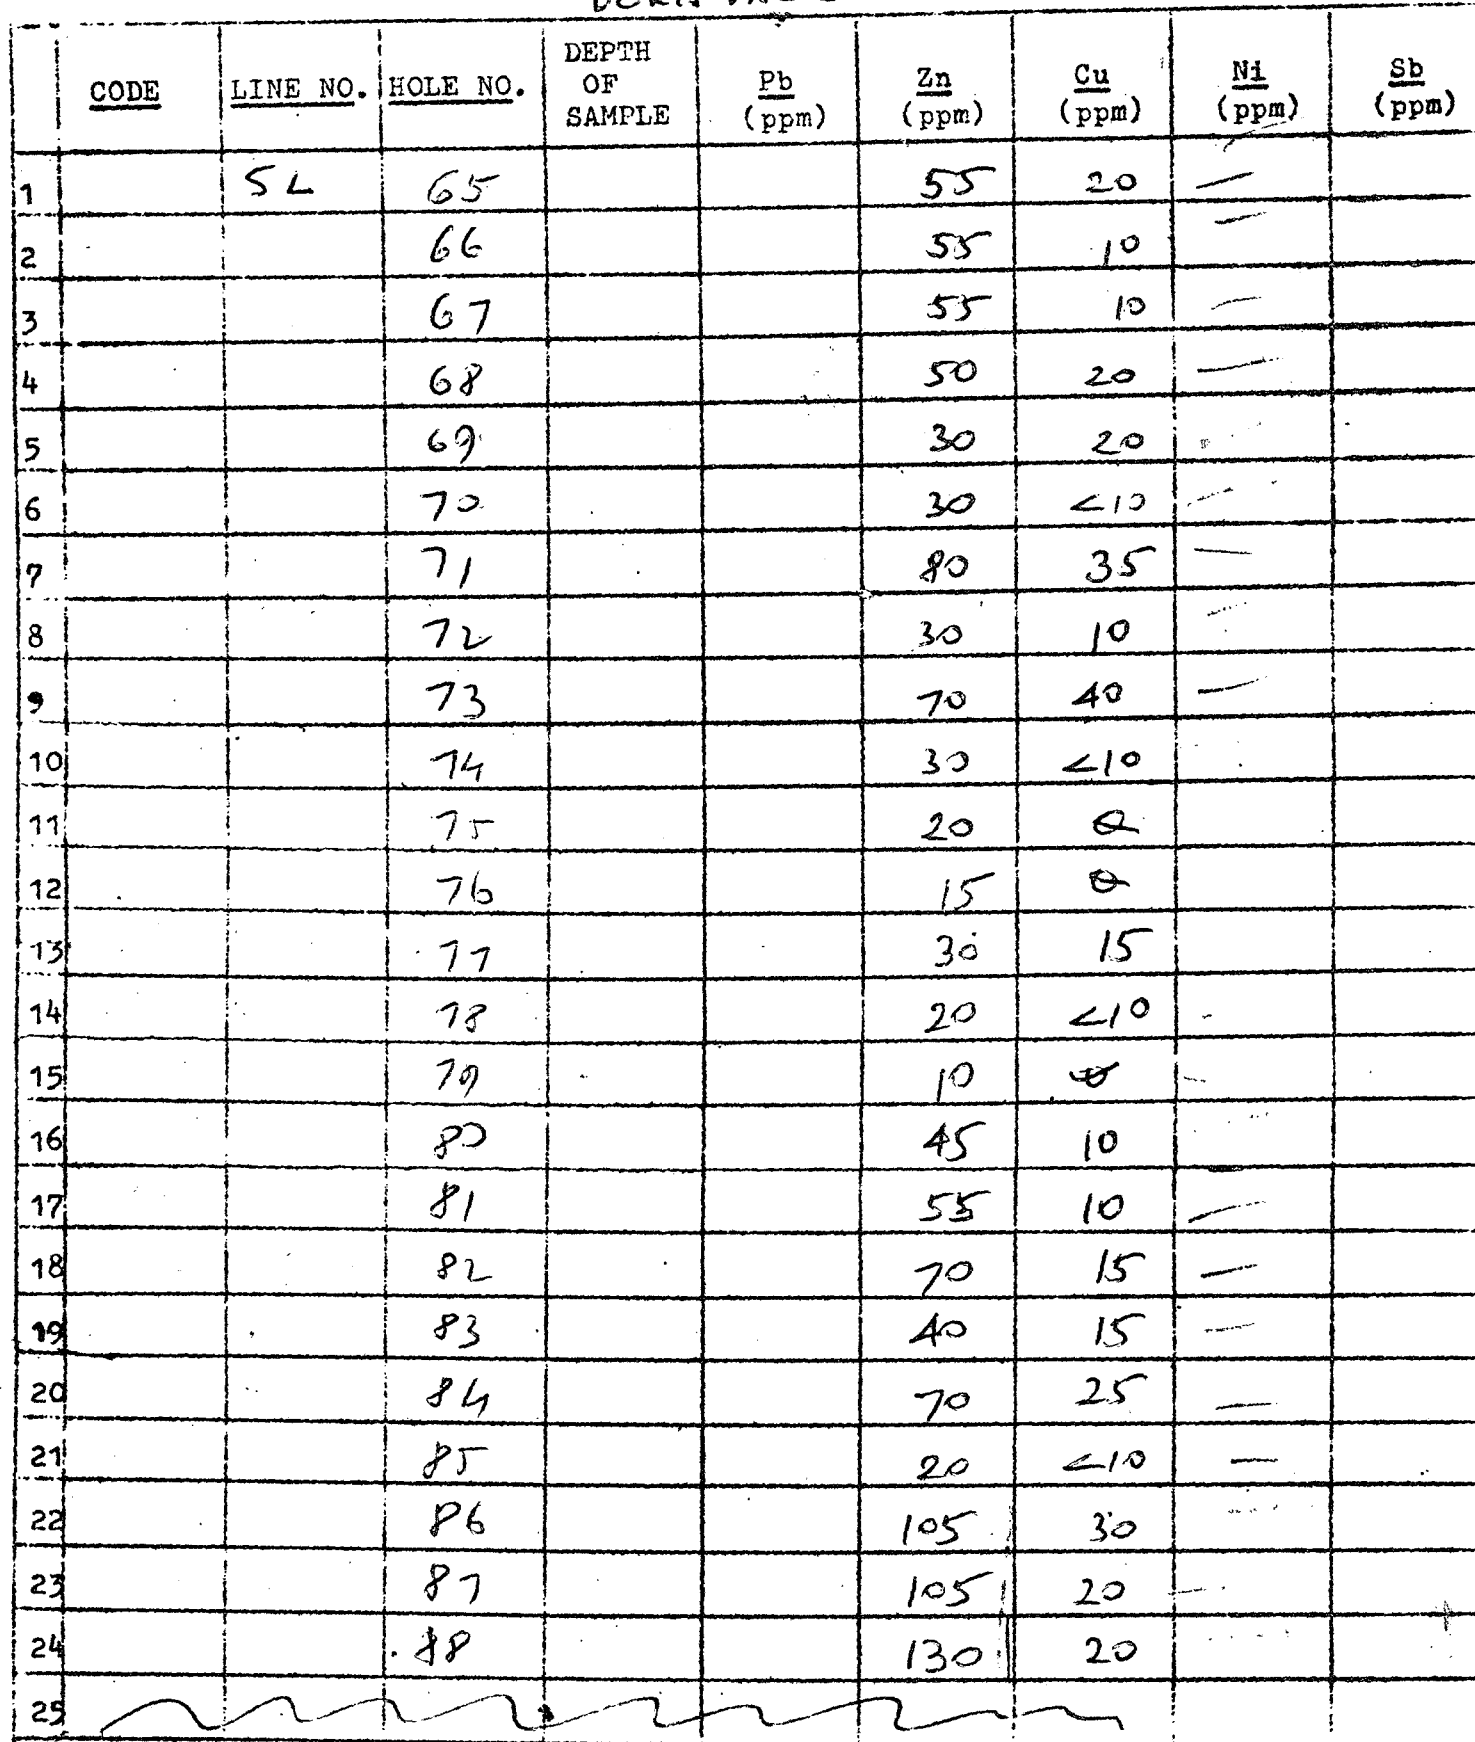 CODE LINE NO. HOLE NO. DEPTH OF SAMPLE Pb (ppm) Zn (ppm) Cu (ppm) Ni (ppm) Sb (ppm)
1 5L 65 55 20 —
2 66 55 10 —
3 67 55 10 —
4 68 50 20 —
5 69 30 20
6 70 30 <10 —
7 71 80 35 —
8 72 30 10 —
9 73 70 40 —
10 74 30 <10
11 75 20
12 76 15
13 77 30 15
14 78 20 <10
15 79 10
16 80 45 10
17 81 55 10 —
18 82 70 15 —
19 83 40 15 —
20 84 70 25 —
21 85 20 <10 —
22 86 105 30
23 87 105 20
24 88 130 20
25